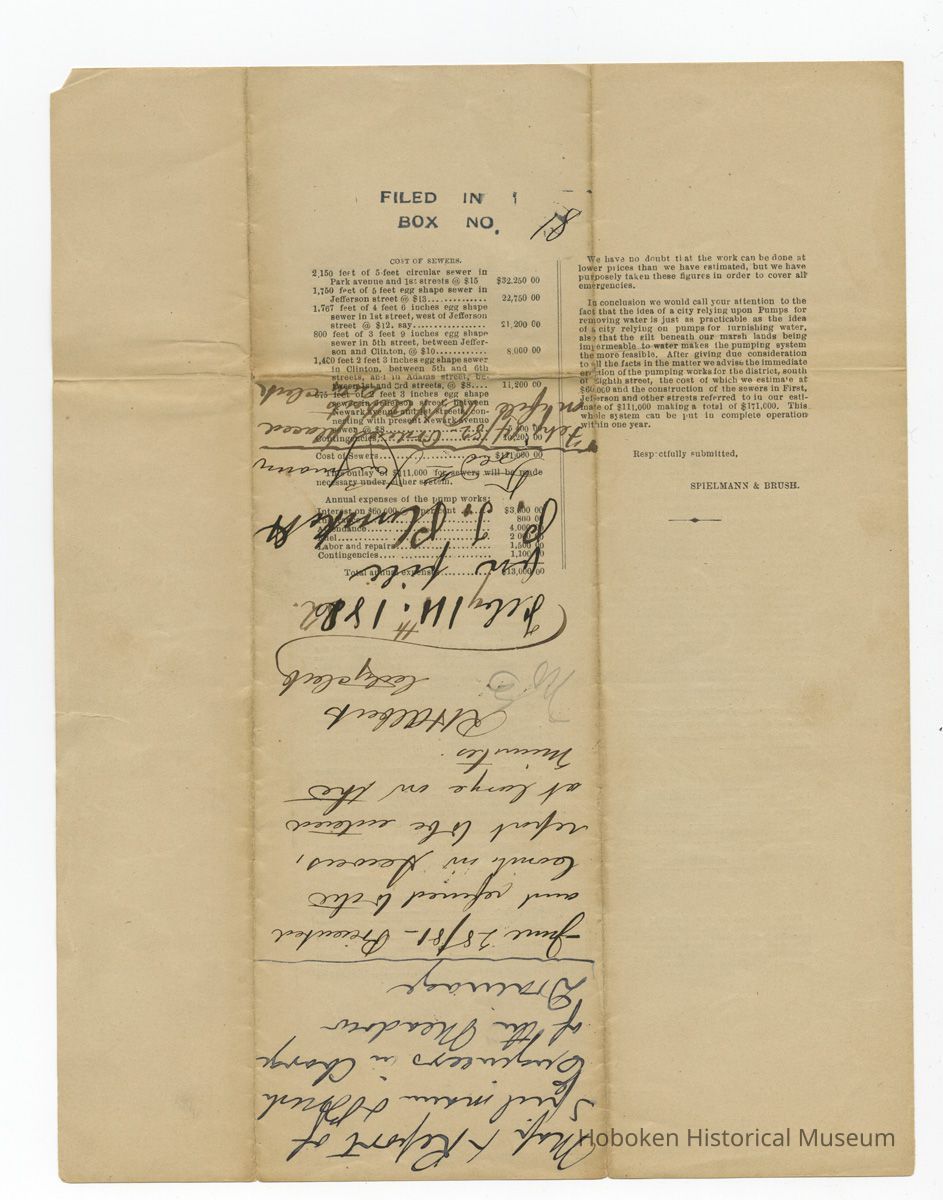 FILED IN
BOX NO.
81
COST OF SEWERS.
2,150 feet of 5 feet circular sewer in
Park avenue and 1st streets @ $15 $32,250 00
1,750 feet of 5 feet egg shape sewer in
Jefferson street @ $13.............. 22,750 00
1,767 feet of 4 feet 6 inches egg shape
sewer in 1st street, west of Jefferson
street @ $12, say................ 21,200 00
800 feet of 3 feet 9 inches egg shape
sewer in 5th street, between Jeffer-
son and Clinton, @ $10............ 8,000 00
1,400 feet 2 feet 3 inches egg shape sewer
in Clinton, between 5th and 6th
streets, and in Adams street, be-
tween 1st and 3rd streets, @ $8.... 11,200 00
feet 3 inches egg shape
between
Newark avenue and 1st streets, con-
necting with present Newark avenue
sewer @ $8
Contingencies
Cost of Sewers $111,000 00
This outlay of $111,000 for sewers will be made
necessary under either system.
Annual expenses of the pump works:
Interest on $60,000 @ per cent $3,
800 00
Attendance 4,000
Fuel 2,0
Labor and repairs 1,500 00
Contingencies.... 1,100
Total annual expenses $13,000 00
We have no doubt that the work can be done at
lower prices than we have estimated, but we have
purposely taken these figures in order to cover all
emergencies.
In conclusion we would call your attention to the
fact that the idea of a city relying upon Pumps for
removing water is just as practicable as the idea
of a city relying on pumps for furnishing water,
also that the silt beneath our marsh lands being
impermeable to water makes the pumping system
the more feasible. After giving due consideration
to all the facts in the matter we advise the immediate
erection of the pumping works for the district, south
of Eighth street, the cost of which we estimate at
$60,000 and the construction of the sewers in First,
Jefferson and other streets referred to in our esti-
mate of $111,000 making a total of $171,000. This
whole system can be put in complete operation
within one year.
Respectfully submitted,
SPIELMANN & BRUSH.
Map & Report of
Spielmann & Brush
Engineers in Charge
of the Meadow
Drainage
June 28/81 - Presented
and referred to the
Comt. on Sewers,
report to be entered
at large on the
minutes.
R H Alberts
City Clerk
Feby 14th 1882.
on file
J. J. Plunkett
Kaufmann
Feby 14/82 - Ordered placed
on file
Clerk
Hoboken Historical Museum